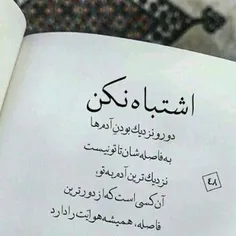 اشتباه نکن
دور و نزدیک بودنِ آدم‌ها
به فاصله‌شان تا تو نیست
نزدیک‌ترین آدم به تو،
آن کسی است که از دورترین
فاصله، همیشه هوایَت را دارد
۴۸